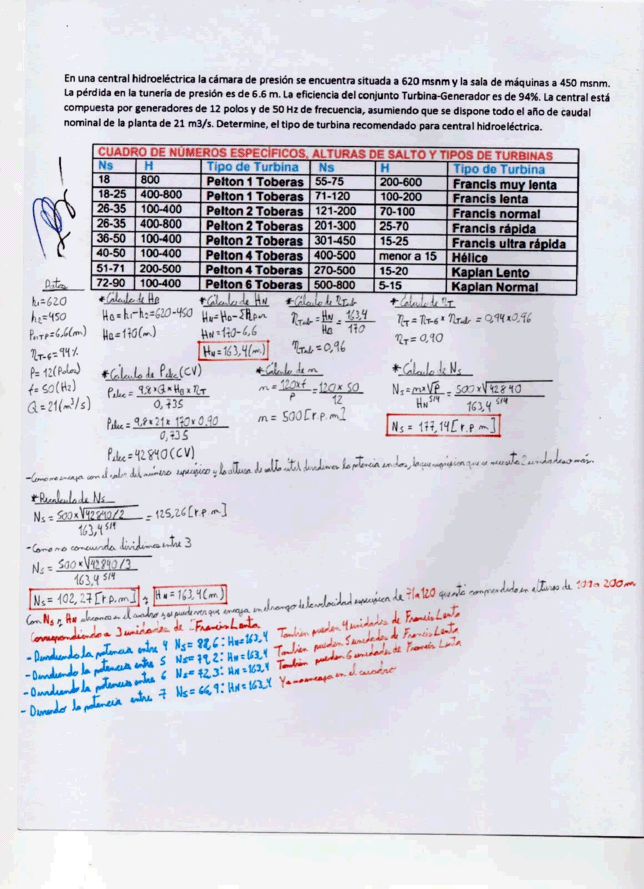 En una central hidroeléctrica la cámara de presión se encuentra situada a 620 msnm y la sala de máquinas a 450 msnm.
La pérdida en la tunería de presión es de 6.6 m. La eficiencia del conjunto Turbina-Generador es de 94%. La central está
compuesta por generadores de 12 polos y de 50 Hz de frecuencia, asumiendo que se dispone todo el año de caudal
nominal de la planta de 21 m3/s. Determine, el tipo de turbina recomendado para central hidroeléctrica.
CUADRO DE NÚMEROS ESPECÍFICOS, ALTURAS DE SALTO Y TIPOS DE TURBINAS
Ns H Tipo de Turbina Ns H Tipo de Turbina
18 800 Pelton 1 Toberas 55-75 200-600 Francis muy lenta
18-25 400-800 Pelton 1 Toberas 71-120 100-200 Francis lenta
26-35 100-400 Pelton 2 Toberas 121-200 70-100 Francis normal
26-35 400-800 Pelton 2 Toberas 201-300 25-70 Francis rápida
36-50 100-400 Pelton 2 Toberas 301-450 15-25 Francis ultra rápida
40-50 100-400 Pelton 4 Toberas 400-500 menor a 15 Hélice
51-71 200-500 Pelton 4 Toberas 270-500 15-20 Kaplan Lento
72-90 100-400 Pelton 6 Toberas 500-800 5-15 Kaplan Normal
Datos
h1=620
h2=450
PNTP=6,6(m)
ηT-G=94%
P=12(Polos)
f=50(Hz)
Q=21(m³/s)
*Cálculo de HB
HB=h1-h2=620-450
HB=170(m)
*Cálculo de HN
HN=HB-ΣhPer
HN=170-6,6
HN=163,4(m)
*Cálculo de ηTub
ηTub=HN/HB=163,4/170
ηTub=0,96
*Cálculo de ηT
ηT=ηT-G*ηTub=0,94*0,96
ηT=0,90
*Cálculo de Pelec(CV)
Pelec=9,8*Q*HB*ηT/0,735
Pelec=9,8*21*170*0,90/0,735
Pelec=42840(CV)
*Cálculo de n
n=120xf/P=120x50/12
n=500[r.p.m]
*Cálculo de Ns
Ns=n*√P/HN^5/4=500*√42840/163,4^5/4
Ns=177,14[r.p.m]
-Como no encaja con el valor del número específico y la altura de salto útil dividimos la potencia en dos, lo que significa que se necesita 2 unidades o más.
*Recálculo de Ns
Ns=500x√42840/2/163,4^5/4=125,26[r.p.m]
-Como no concuerda dividimos entre 3
Ns=500*√42840/3/163,4^5/4
Ns=102,27[r.p.m]; HN=163,4(m)
Con Ns y HN en el cuadro que encaja en el rango de la velocidad específica de 71a120 que está comprendido en alturas de 100a200m
Correspondiendo a 3 unidades de Francis Lenta
-Dividiendo la potencia entre 4 Ns=88,6; HN=163,4 También pueden 4 unidades de Francis Lenta
-Dividiendo la potencia entre 5 Ns=79,2; HN=163,4 También pueden 5 unidades de Francis Lenta
-Dividiendo la potencia entre 6 Ns=72,3; HN=163,4 También pueden 6 unidades de Francis Lenta
-Dividiendo la potencia entre 7 Ns=66,9; HN=163,4 Ya no encaja en el cuadro